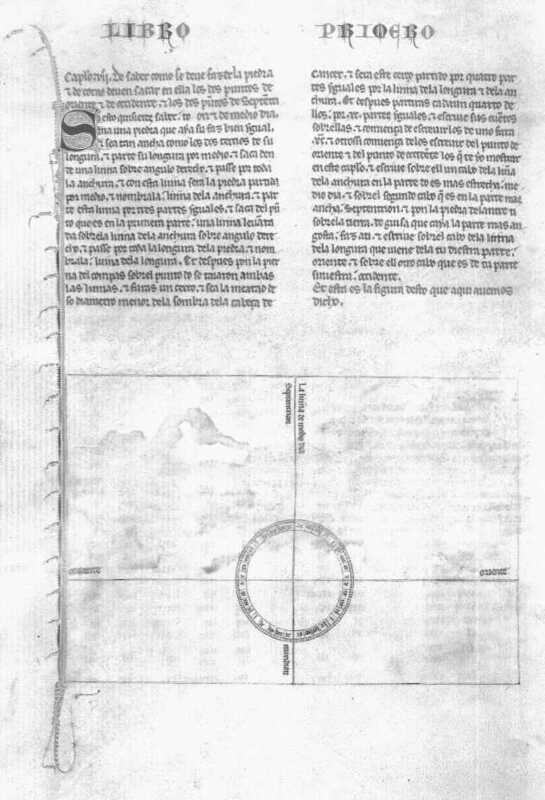 LIBRO PRIMERO
Capło. vij. De saber como se deue fazer la piedra
& de como deuen sacar en ella los dos puntos de
oriente & de occidente. & los dos pūtos de Septētri
on & de medio dia.
Si esto quisieres saber. to
ma una piedra que aya su faz bien egual.
& sea tan ancha como los dos tercios de su
longura. & parte su longura por medio. & saca den
de una linna sobre angulo derecho. & passe por toda
la anchura. & con esta linna sera la piedra partida
por medio. & nombrala. linna dela anchura. & par
te esta linna por tres partes eguales. & saca del pū
to que es en la primera parte. una linna leuāta
da sobrela linna dela anchura sobre angulo dere
cho. & passe por toda la longura dela piedra. & nom
brala. linna dela longura. Et despues pon la pier
na del compas sobrel punto do se taiaron ambas
las linnas. & faras un cerco. & sea la meatad de
so diametro menor dela sombra dela cabeça de
Cancer. & sera este cerco partido por quatro par
tes eguales por la linna dela longura & dela an
chura. Et despues partiras cadaun quarto de
llos. por. xc. partes eguales. & escriue sus cuētos
sobrellas. & comiença de escreuir los de uno fata
.xc. & otrossi comiença delos escreuir del punto de
oriente & del punto de occidēte. los q̄ te yo mostrar
en este capło. & escriue sobre ell un cabo dela liña
dela anchura en la parte do es mas estrecha. me
dio dia. & sobrel segundo cabo q̄ es en la parte mas
ancha. Septentrion. & pon la piedra delante ti
sobrela tierra. de guisa que caya la parte mas an
gosta. faz ati. & escriue sobrel cabo dela linna
dela longura que uiene dela tu diestra parte.
oriente. & sobre ell otro cabo que es de tu parte
siniestra. occidente.
Et esta es la figura desto que aqui auemos
dicho.
La linna de medio dia
Septentrion
occidente
oriente
meridion